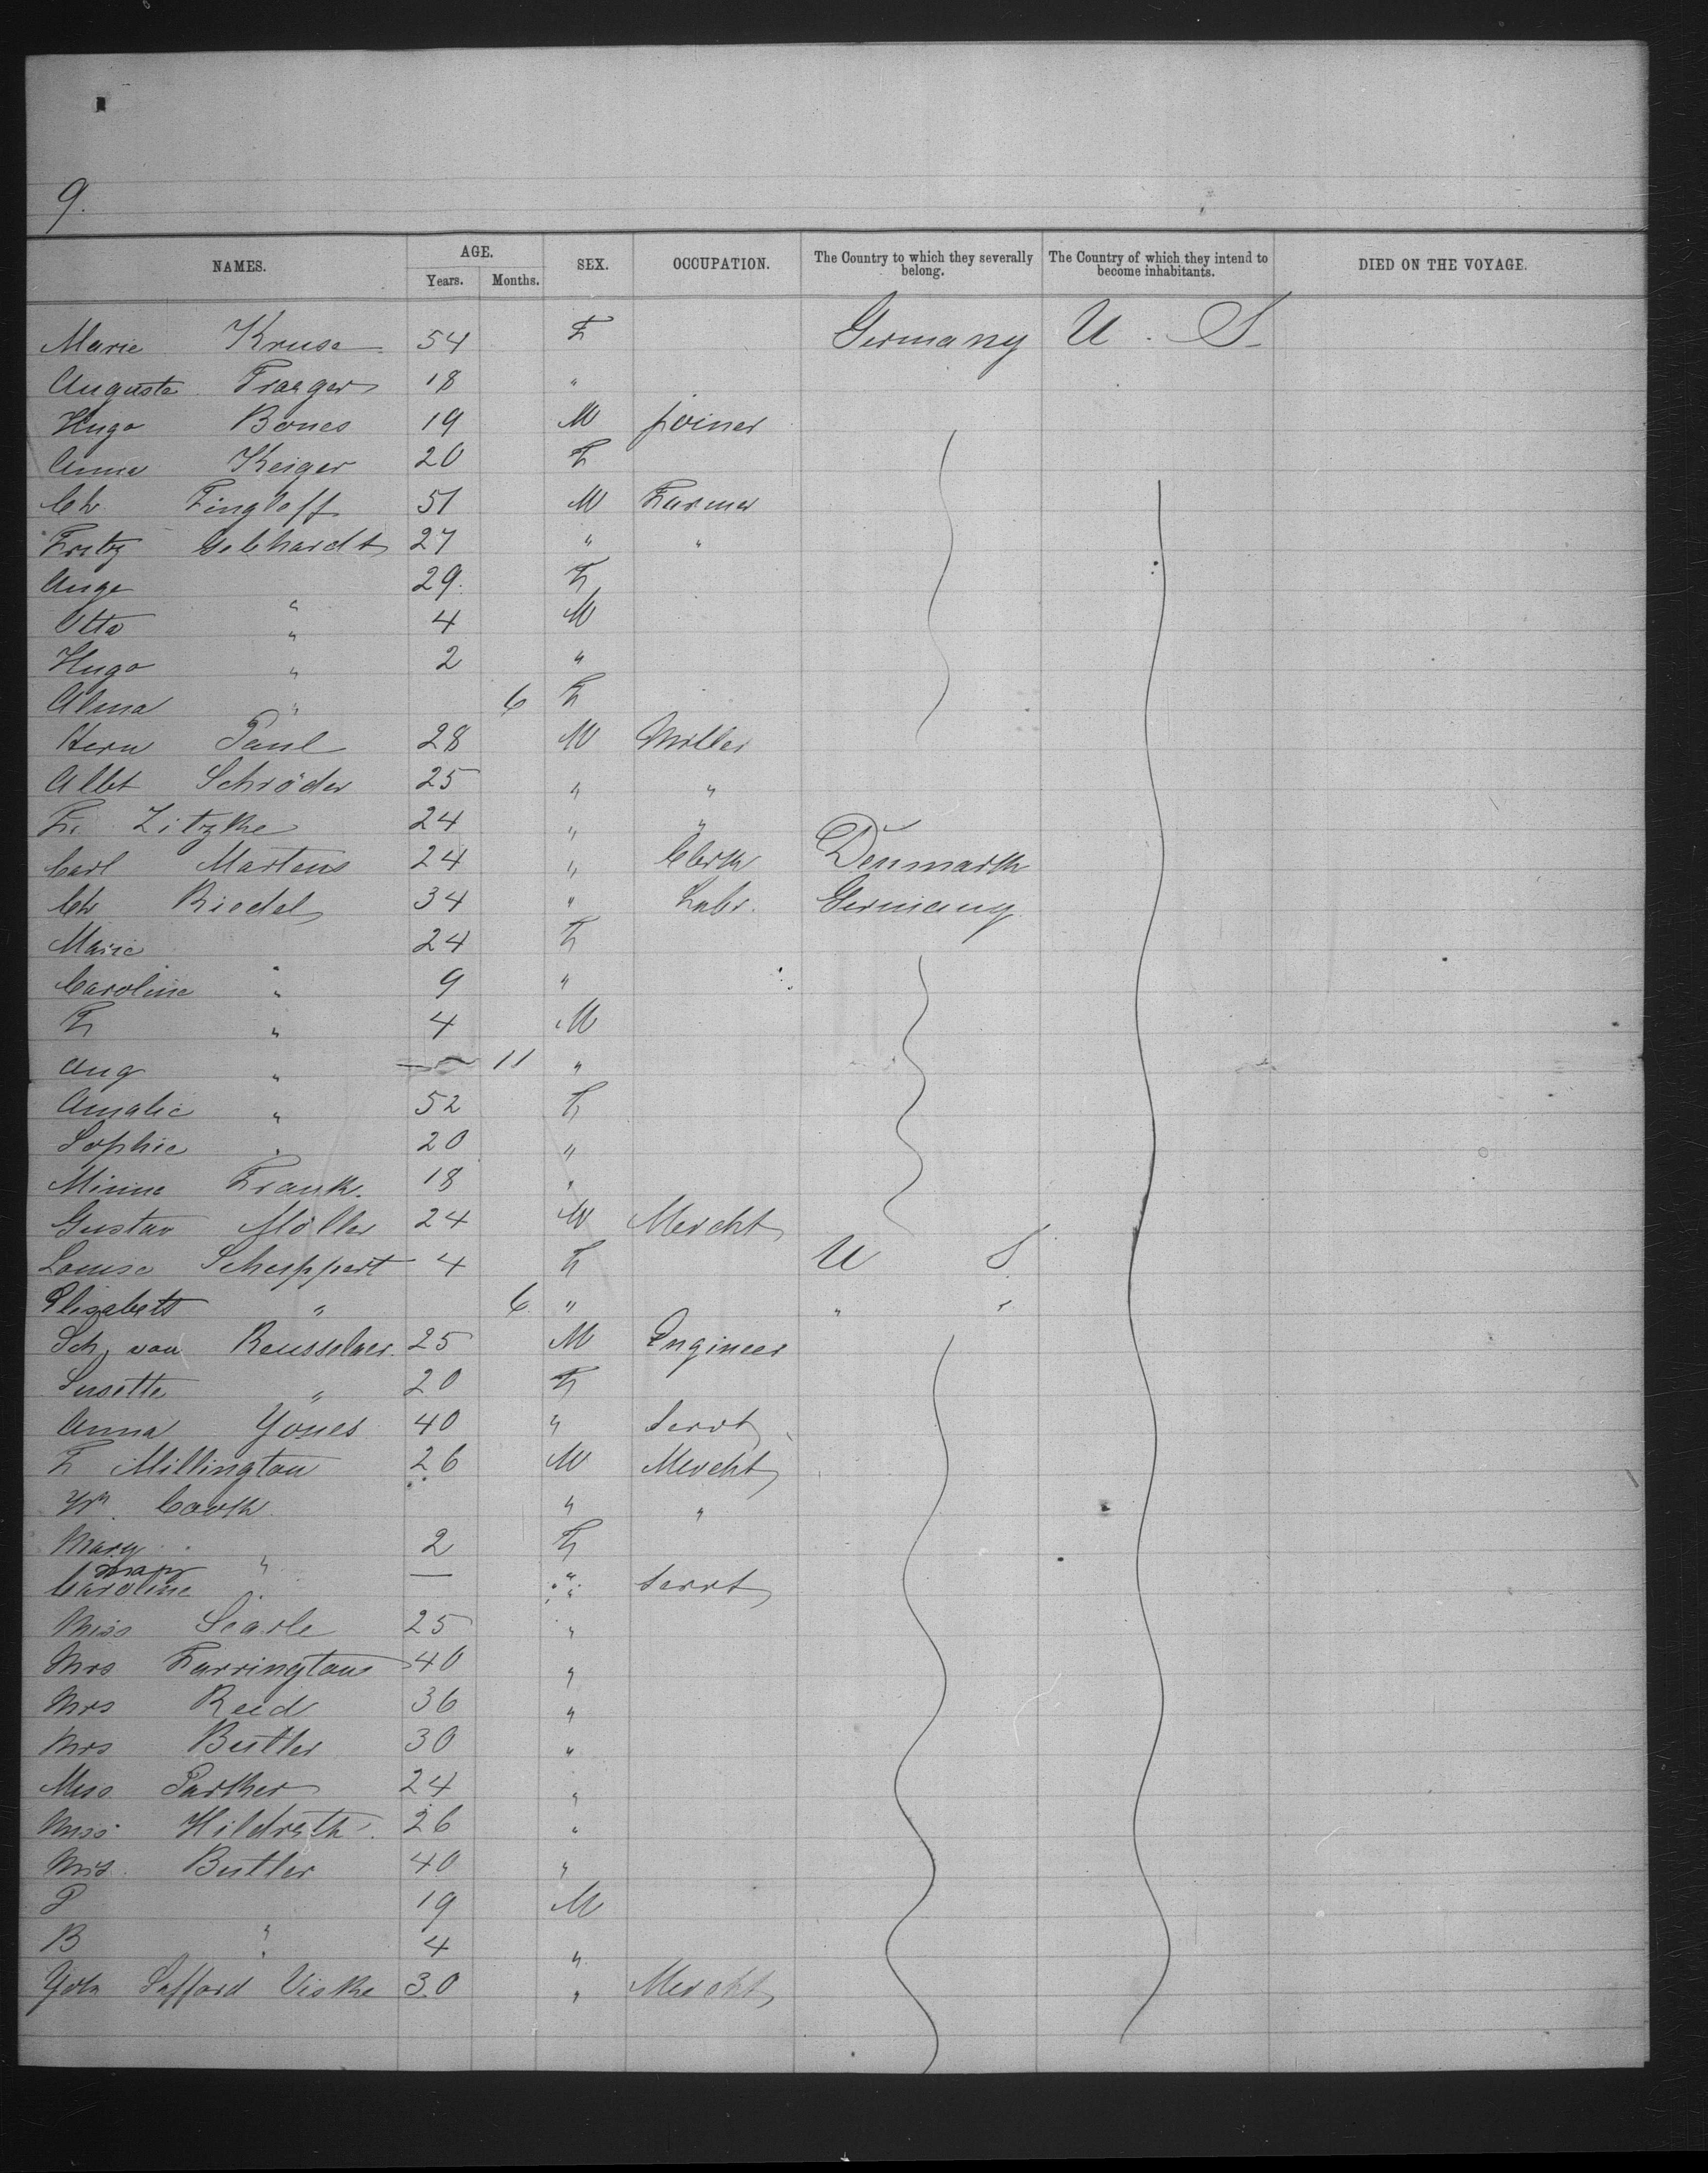 9.
NAMES. AGE. SEX. OCCUPATION. The Country to which they severally belong. The Country of which they intend to become inhabitants. DIED ON THE VOYAGE.
Years. Months.
Marie Kruse 54 F Germany U. S.
Auguste Traeger 18 "
Hugo Bones 19 M joiner
Anna Keiger 20 F
Ch Fingloff 51 M Farmer
Fritz Gebhardt 27 " "
Auge " 29. F
Otto " 4 M
Hugo " 2 "
Alma " 6 F
Herm Paul 28 M Miller
Albt Schröder 25 " "
Fr. Zitzke 24 " "
Carl Martens 24 " Clerk Denmark
Ch Riedel 34 " Labr. Germany
Marie 24 F
Caroline " 9 "
F " 4 M
Aug " 11 "
Amalie " 52 F
Sophie " 20 "
Minna Frank. 18 "
Gustav Möller 24 M Mercht
Louise Scheppert 4 F U S.
Elisabeth " 6 " " "
Sch. van Rensselaer. 25 M Engineer
Susette " 20 F
Anna Yones 40 " Servt
F Millington 26 M Mercht
Wm. Cook " "
Mary " 2 F
Mary — "
Caroline " " Servt
Miss Searle 25 "
Mrs Farrington 40 "
Mrs Reid 36 "
Mrs Butler 30 "
Miss Parker 24 "
Miss Hildreth. 26 "
Mrs. Butler 40 "
P 19 M
B " 4 "
Yoh Safford Viske 30 " Mercht